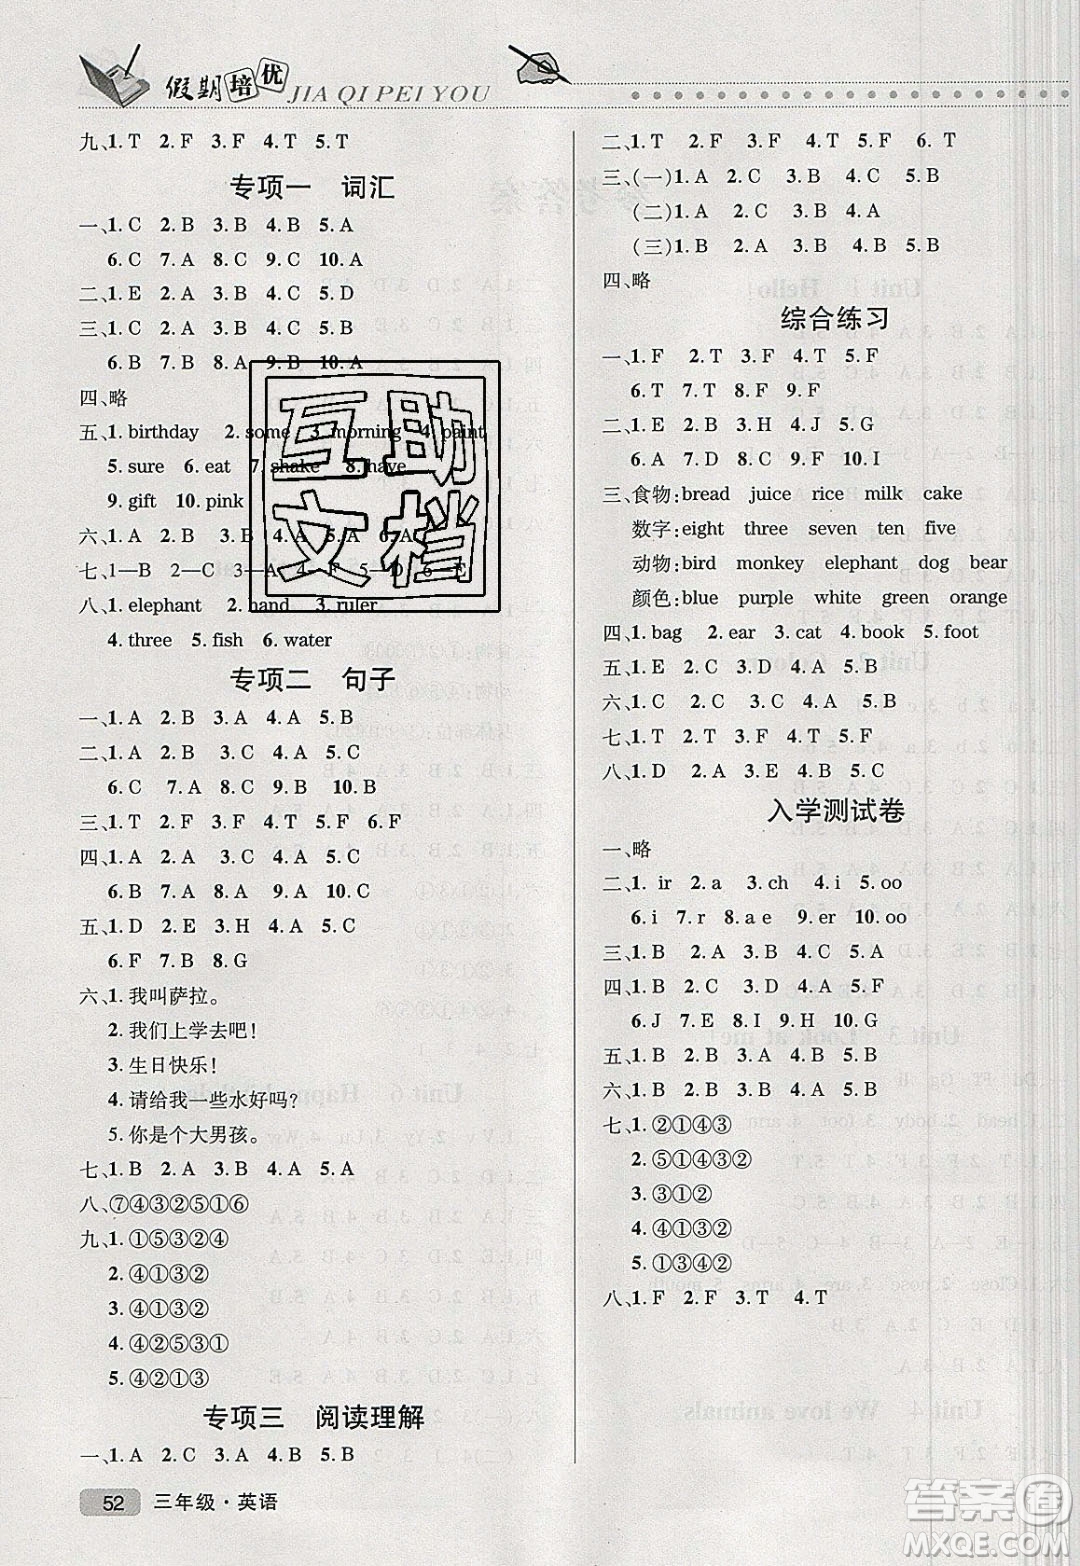 假期培优
JIA QI PEI YOU
九、1. T 2. F 3. F 4. T 5. T
专项一 词汇
一、1. C 2. B 3. B 4. B 5. A
6. C 7. A 8. C 9. C 10. A
二、1. E 2. A 3. B 4. C 5. D
三、1. C 2. A 3. A 4. C 5. B
6. B 7. B 8. A 9. B 10. A
四、略
五、1. birthday 2. some 3. morning 4. paint
5. sure 6. eat 7. shake 8. have
9. gift 10. pink
六、1. A 2. B 3. B 4. A 5. A 6. A
七、1—B 2—C 3—A 4—F 5—D 6—E
八、1. elephant 2. hand 3. ruler
4. three 5. fish 6. water
专项二 句子
一、1. A 2. B 3. A 4. A 5. B
二、1. A 2. B 3. C 4. A 5. A
6. C 7. A 8. A 9. B 10. B
三、1. T 2. F 3. F 4. T 5. F 6. F
四、1. A 2. A 3. C 4. B 5. A
6. B 7. A 8. A 9. A 10. B
五、1. D 2. E 3. H 4. A 5. C
6. F 7. B 8. G
六、1. 我叫萨拉。
2. 我们上学去吧!
3. 生日快乐!
4. 请给我一些水好吗?
5. 你是个大男孩。
七、1. B 2. A 3. B 4. A 5. A
八、⑦④③②⑤①⑥
九、1. ①⑤③②④
2. ④①③②
3. ④①③②
4. ④②⑤③①
5. ④②①③
专项三 阅读理解
一、1. A 2. C 3. A 4. B 5. B
52 三年级·英语
二、1. T 2. F 3. T 4. F 5. F 6. T
三、(一)1. A 2. B 3. B 4. A 5. A
(二)1. A 2. C 3. A 4. A 5. B
(三)1. B 2. A 3. A 4. B 5. B
四、略
综合练习
一、1. F 2. T 3. F 4. T 5. F
6. T 7. T 8. F 9. F
二、1. C 2. B 3. H 4. J 5. G
6. A 7. D 8. E 9. F 10. I
三、食物:bread juice rice milk cake
数字:eight three seven ten five
动物:bird monkey elephant dog bear
颜色:blue purple white green orange
四、1. bag 2. ear 3. cat 4. book 5. foot
五、1. E 2. C 3. D 4. A 5. B
六、1. C 2. C 3. C 4. A 5. B
七、1. T 2. F 3. F 4. T 5. F
八、1. D 2. A 3. E 4. C 5. B
入学测试卷
一、略
二、1. ir 2. a 3. ch 4. i 5. oo
6. i 7. r 8. a e 9. er 10. oo
三、1. B 2. A 3. B 4. C 5. A
四、1. A 2. C 3. B 4. D 5. F
6. J 7. E 8. I 9. H 10. G
五、1. B 2. B 3. A 4. B 5. B
六、1. B 2. B 3. B 4. A 5. B
七、1. ②①④③
2. ⑤①④③②
3. ③①②
4. ④①③②
5. ①③④②
八、1. F 2. F 3. T 4. T
互助
文档
答案圈
MXQE.COM